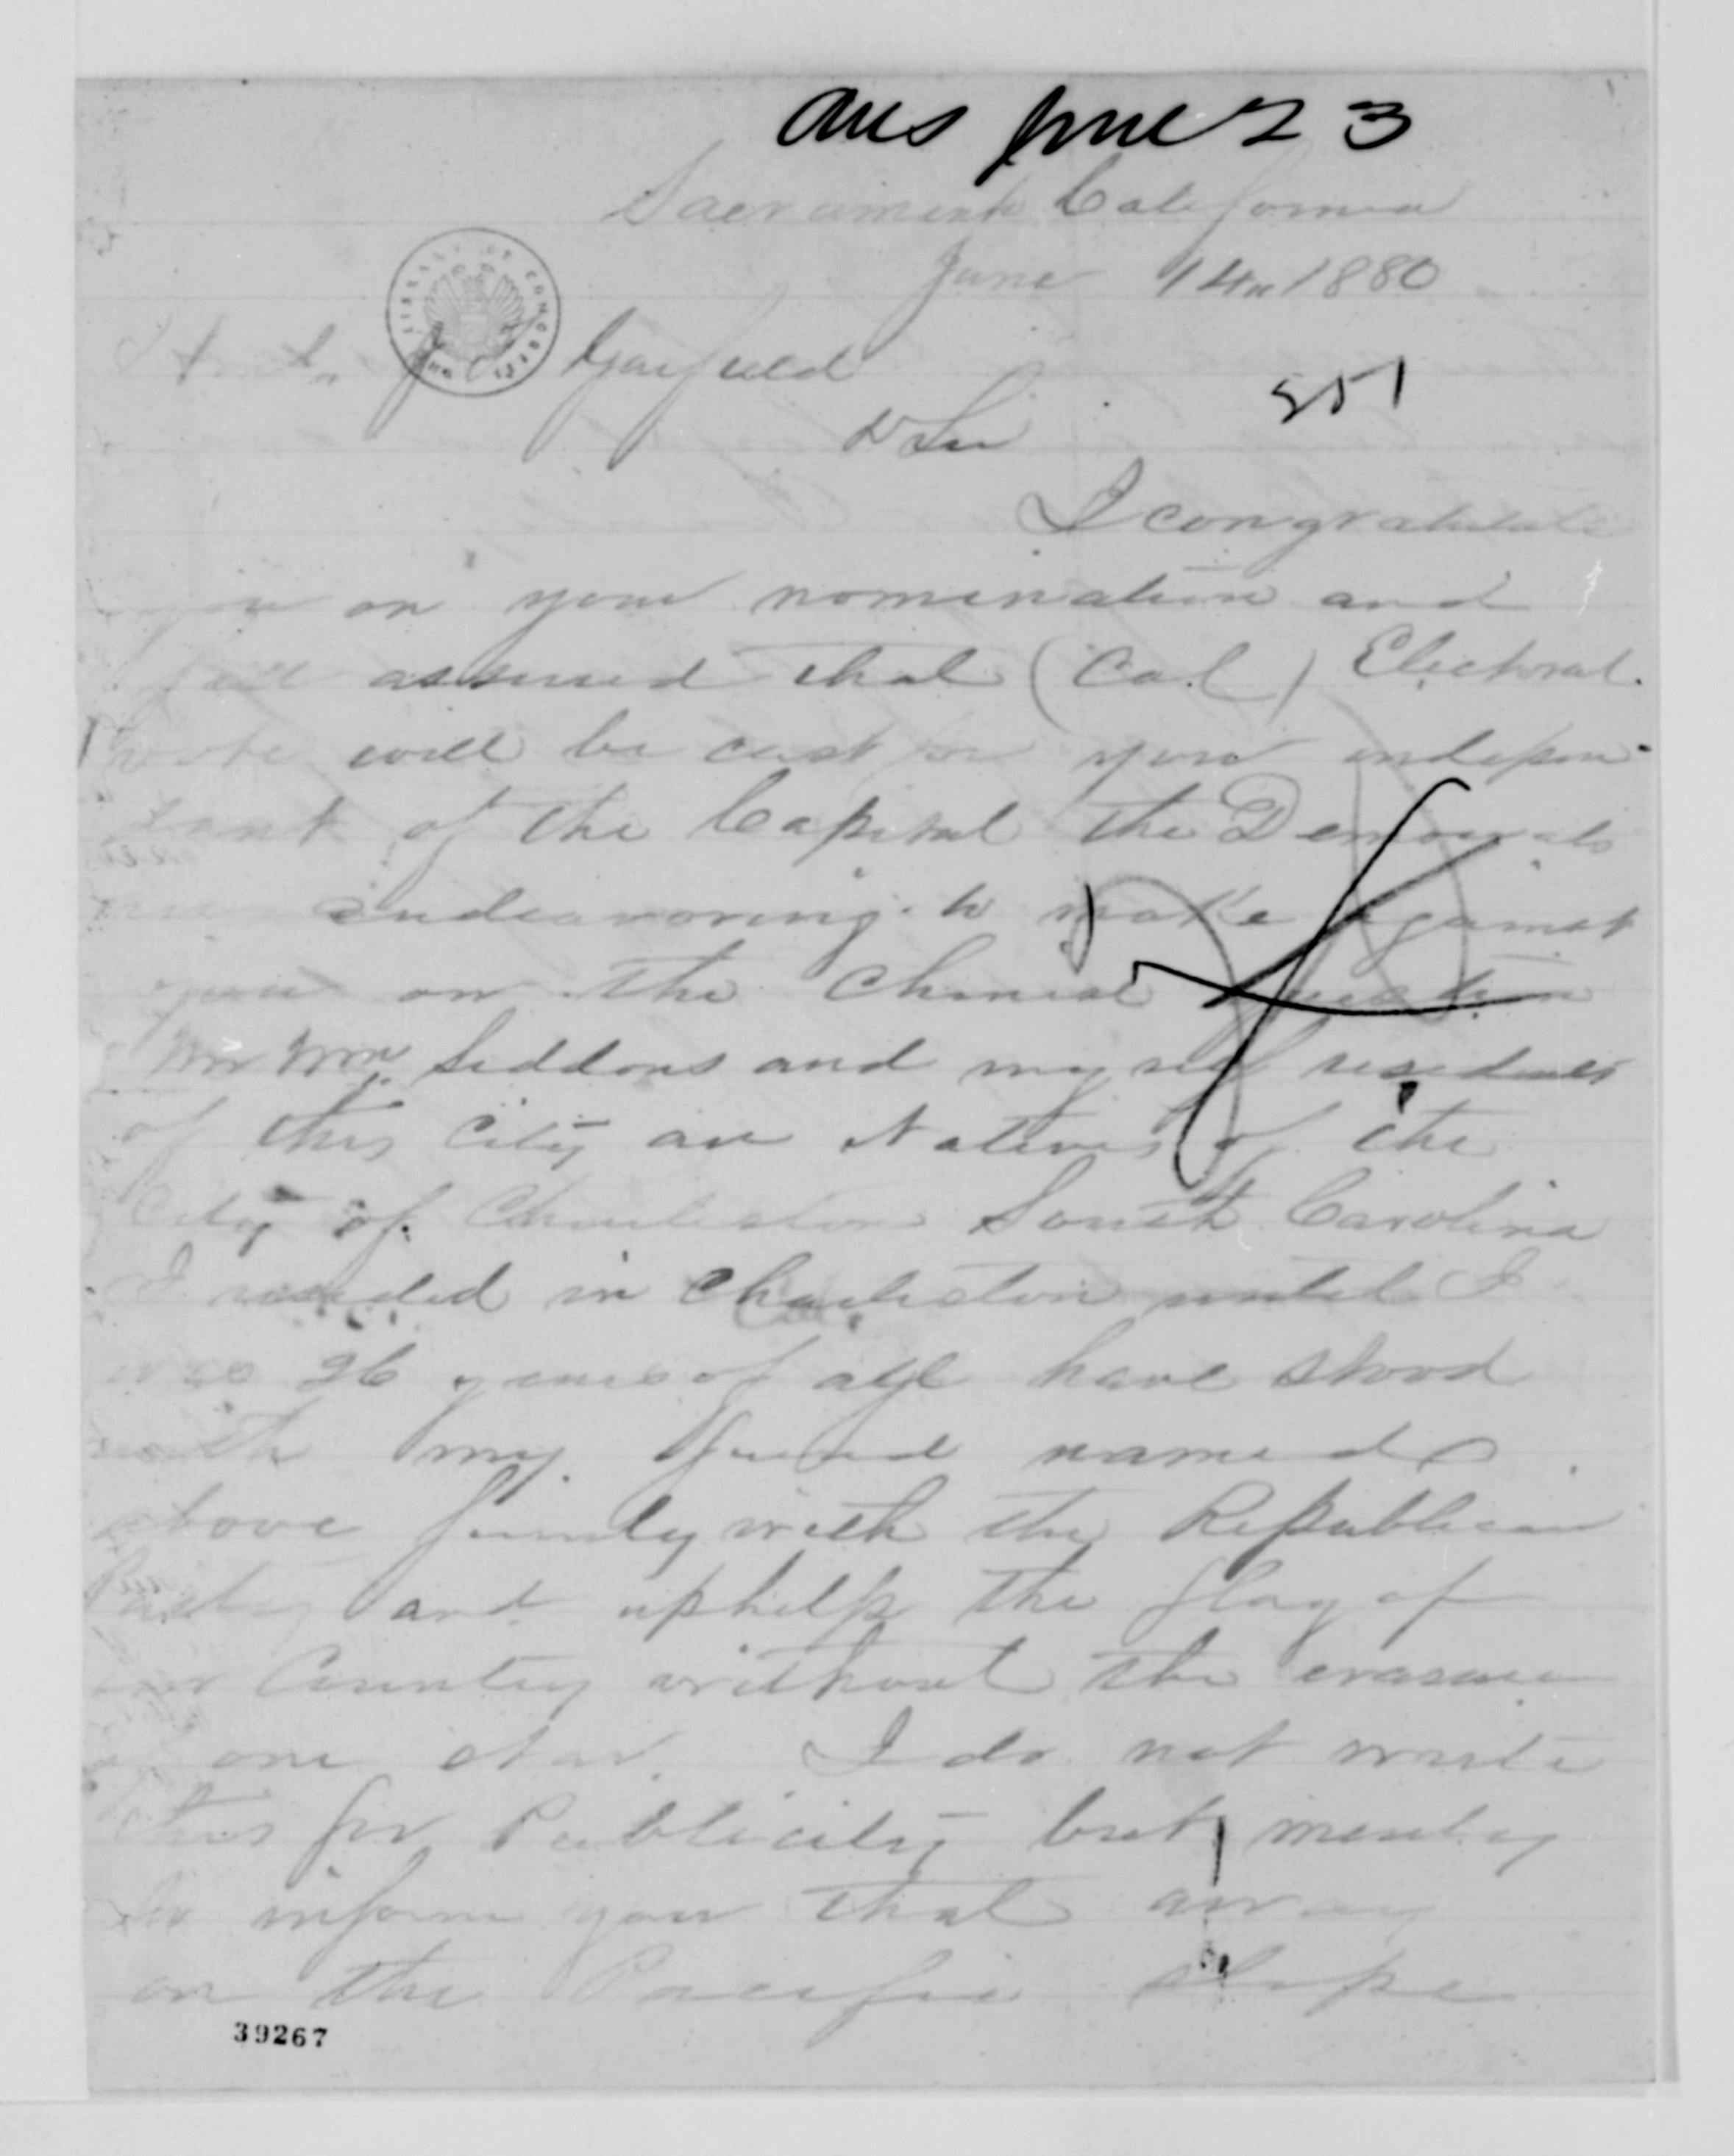 Ans June 23
Sacramento California
June 14th 1880
Hon J A Garfield
D Sir
551
I congratulate
you on your nomination and
feel assured that (Cal) Electoral
vote will be cast for you indepen-
dant of the Capital the Democrats
are endeavoring to make against
you on the Chinese question
Mr Wm Siddons and myself residents
of this City are Natives of the
City of Charleston South Carolina
I resided in Charleston until I
was 26 years of age have stood
with my friend named
above firmly with the Republican
Party and uphelp the flag of
our Country without the erasure
of one star. I do not write
this for Publicity but merely
to inform you that away
on the Pacific slope
39267
LIBRARY OF CONGRESS